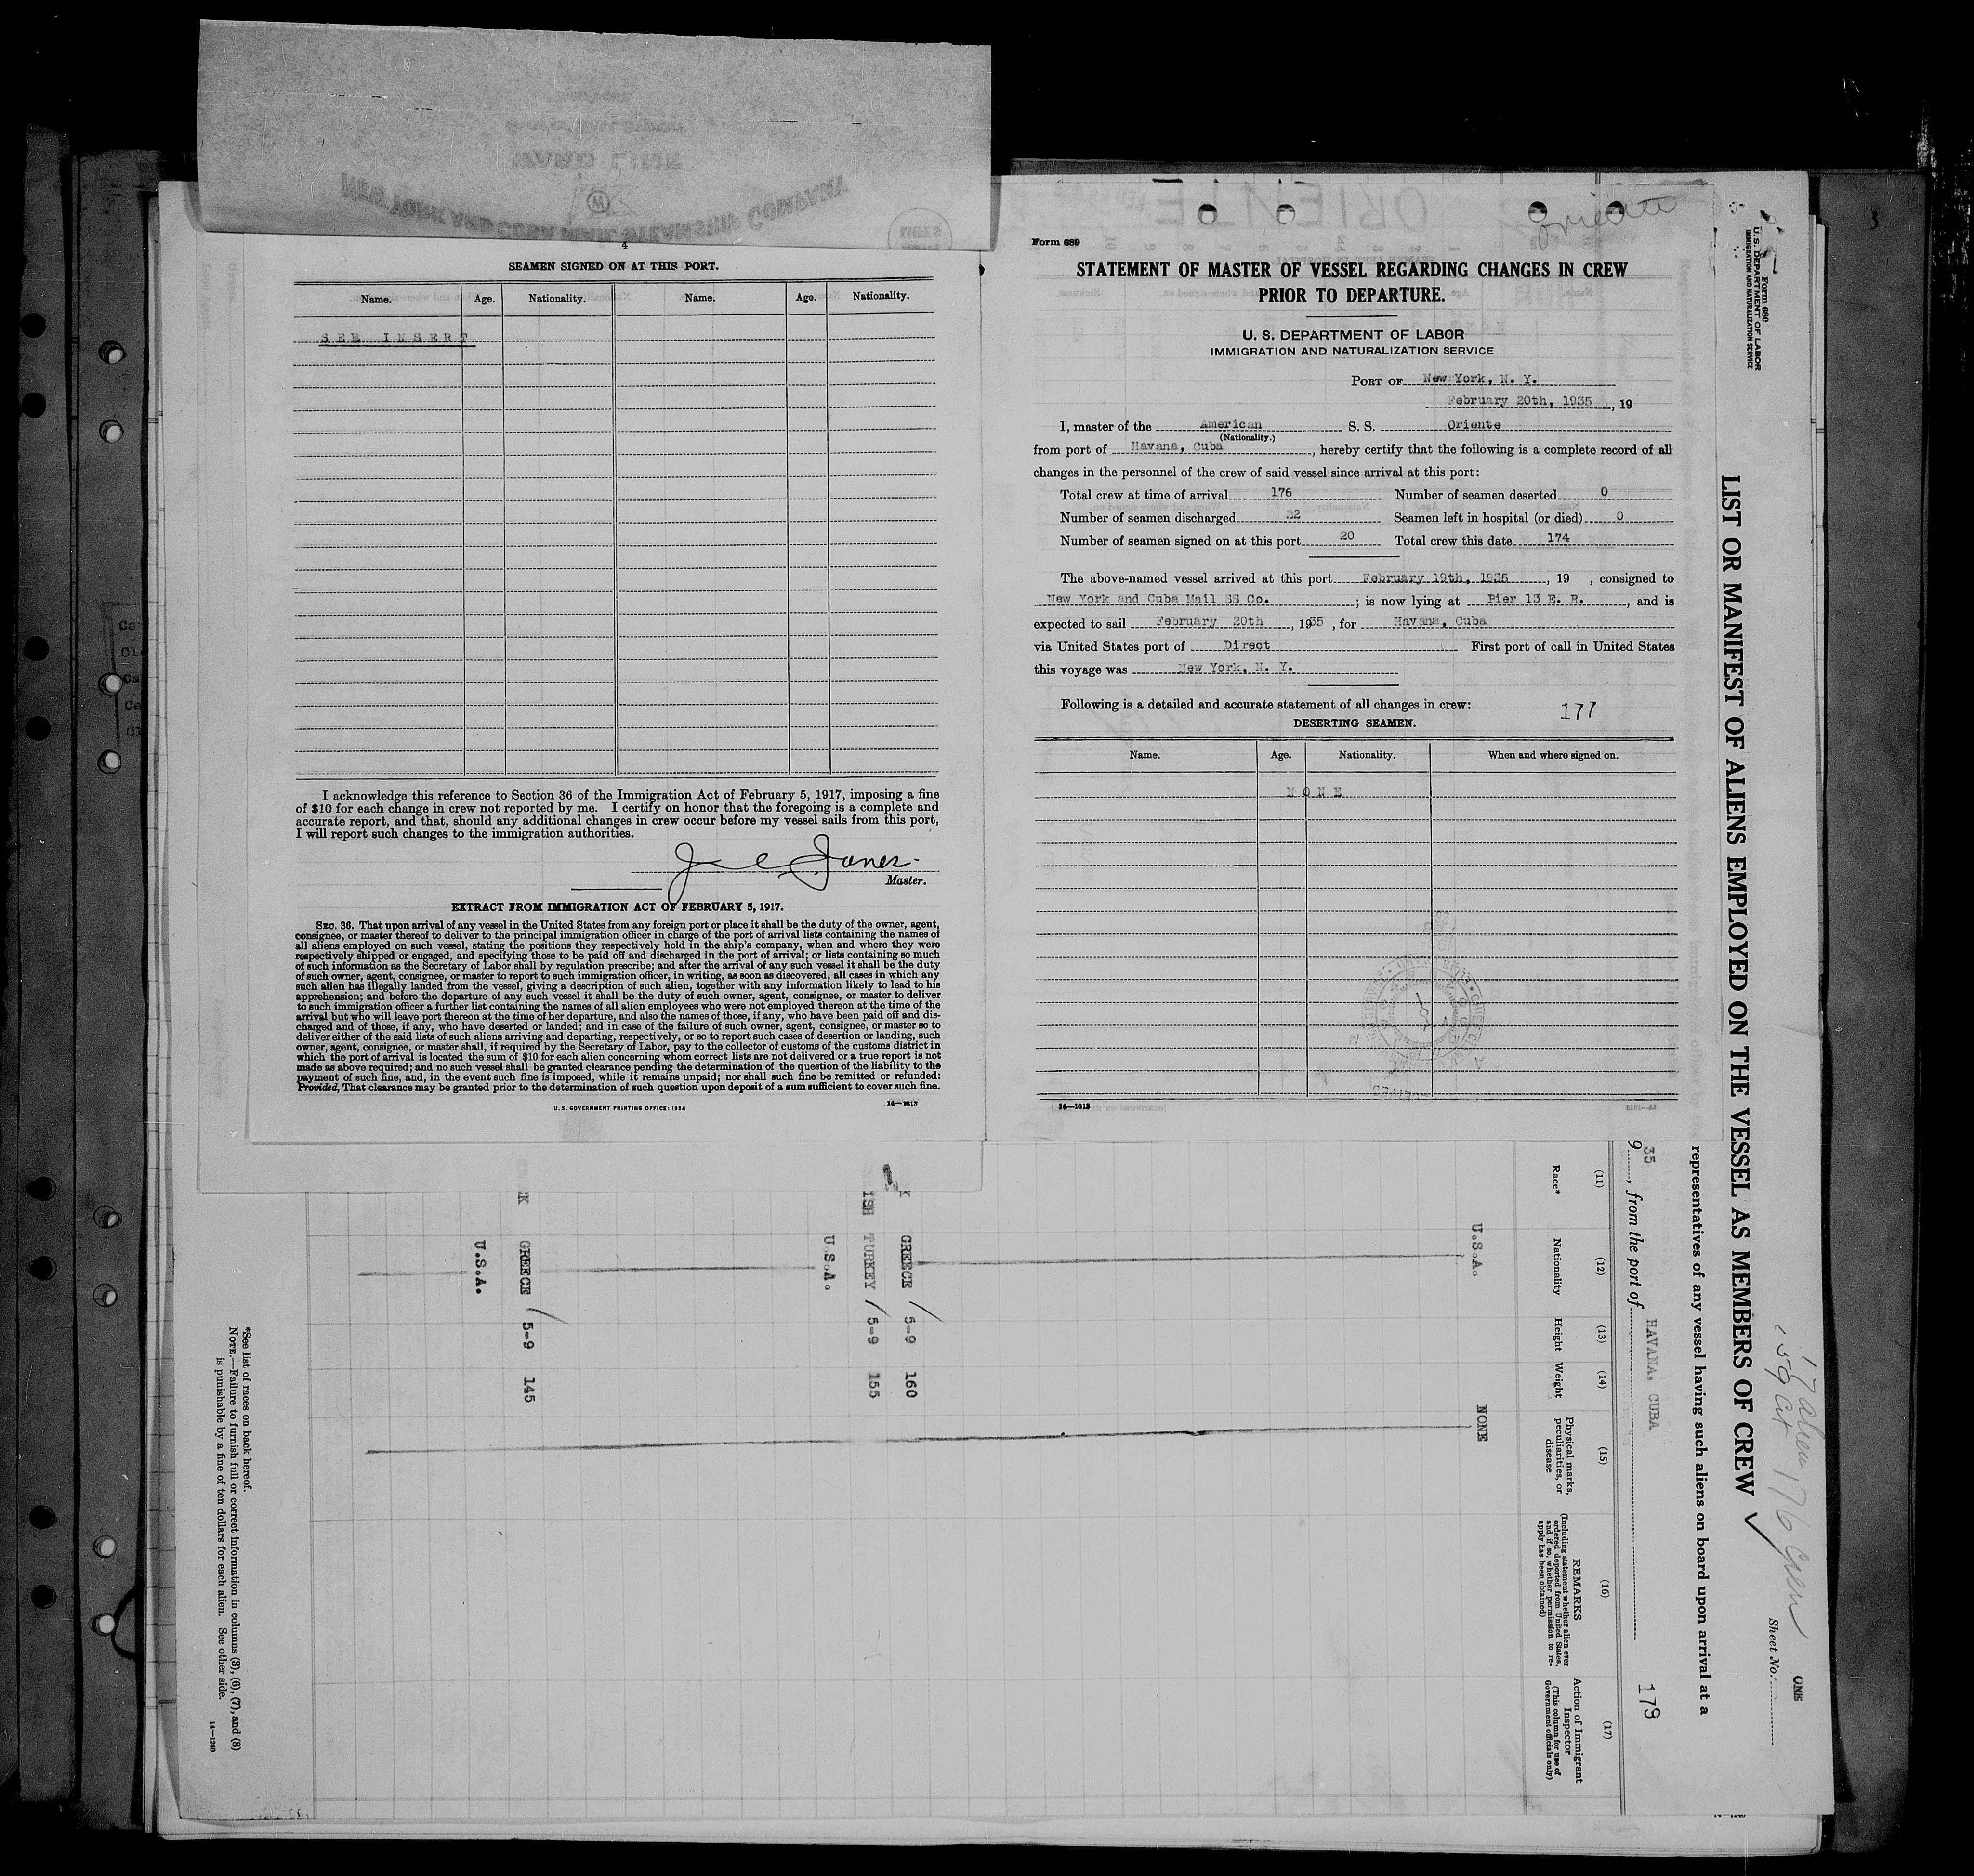 4
SEAMEN SIGNED ON AT THIS PORT.
Name. Age. Nationality. Name. Age. Nationality.
SEE INSERT
I acknowledge this reference to Section 36 of the Immigration Act of February 5, 1917, imposing a fine
of $10 for each change in crew not reported by me. I certify on honor that the foregoing is a complete and
accurate report, and that, should any additional changes in crew occur before my vessel sails from this port,
I will report such changes to the immigration authorities.
Jones
Master.
EXTRACT FROM IMMIGRATION ACT OF FEBRUARY 5, 1917.
SEC. 36. That upon arrival of any vessel in the United States from any foreign port or place it shall be the duty of the owner, agent,
consignee, or master thereof to deliver to the principal immigration officer in charge of the port of arrival lists containing the names of
all aliens employed on such vessel, stating the positions they respectively hold in the ship's company, when and where they were
respectively shipped or engaged, and specifying those to be paid off and discharged in the port of arrival; or lists containing so much
of such information as the Secretary of Labor shall by regulation prescribe; and after the arrival of any such vessel it shall be the duty
of such owner, agent, consignee, or master to report to such immigration officer, in writing, as soon as discovered, all cases in which any
such alien has illegally landed from the vessel, giving a description of such alien, together with any information likely to lead to his
apprehension; and before the departure of any such vessel it shall be the duty of such owner, agent, consignee, or master to deliver
to such immigration officer a further list containing the names of all alien employees who were not employed thereon at the time of the
arrival but who will leave port thereon at the time of her departure, and also the names of those, if any, who have been paid off and dis-
charged and of those, if any, who have deserted or landed; and in case of the failure of such owner, agent, consignee, or master so to
deliver either of the said lists of such aliens arriving and departing, respectively, or so to report such cases of desertion or landing, such
owner, agent, consignee, or master shall, if required by the Secretary of Labor, pay to the collector of customs of the customs district in
which the port of arrival is located the sum of $10 for each alien concerning whom correct lists are not delivered or a true report is not
made as above required; and no such vessel shall be granted clearance pending the determination of the question of the liability to the
payment of such fine, and, in the event such fine is imposed, while it remains unpaid; nor shall such fine be remitted or refunded:
Provided, That clearance may be granted prior to the determination of such question upon deposit of a sum sufficient to cover such fine.
U. S. GOVERNMENT PRINTING OFFICE: 1934 14—1613
Oriente
Form 689
STATEMENT OF MASTER OF VESSEL REGARDING CHANGES IN CREW
PRIOR TO DEPARTURE.
U. S. DEPARTMENT OF LABOR
IMMIGRATION AND NATURALIZATION SERVICE
PORT OF New York, N. Y.
February 20th, 1935, 19
I, master of the American S. S. Oriente
(Nationality.)
from port of Havana, Cuba, hereby certify that the following is a complete record of all
changes in the personnel of the crew of said vessel since arrival at this port:
Total crew at time of arrival 176 Number of seamen deserted 0
Number of seamen discharged 22 Seamen left in hospital (or died) 0
Number of seamen signed on at this port 20 Total crew this date 174
The above-named vessel arrived at this port February 19th, 1935, 19 , consigned to
New York and Cuba Mail SS Co. ; is now lying at Pier 13 E. R. , and is
expected to sail February 20th, 1935, for Havana, Cuba
via United States port of Direct First port of call in United States
this voyage was New York, N. Y.
Following is a detailed and accurate statement of all changes in crew: 177
DESERTING SEAMEN.
Name. Age. Nationality. When and where signed on.
NONE
14—1613
Form 680
U. S. DEPARTMENT OF LABOR
IMMIGRATION AND NATURALIZATION SERVICE
Sheet No. ONE
176 crew
LIST OR MANIFEST OF ALIENS EMPLOYED ON THE VESSEL AS MEMBERS OF CREW
representatives of any vessel having such aliens on board upon arrival at a
935, from the port of HAVANA, CUBA 179
(11) (12) (13) (14) (15) (16) (17)
Race* Nationality Height Weight Physical marks, peculiarities, or disease
REMARKS
(Including statement whether alien ever ordered deported from United States, and if so, whether permission to re-apply has been obtained)
Action of Immigrant Inspector
(This column for use of Government officials only)
U.S.A. NONE
K GREECE 5-9 160
ISH TURKEY 5-9 155
U.S.A.
K GREECE 5-9 145
U.S.A.
*See list of races on back hereof.
NOTE.—Failure to furnish full or correct information in columns (3), (6), (7), and (8)
is punishable by a fine of ten dollars for each alien. See other side.
14—1240